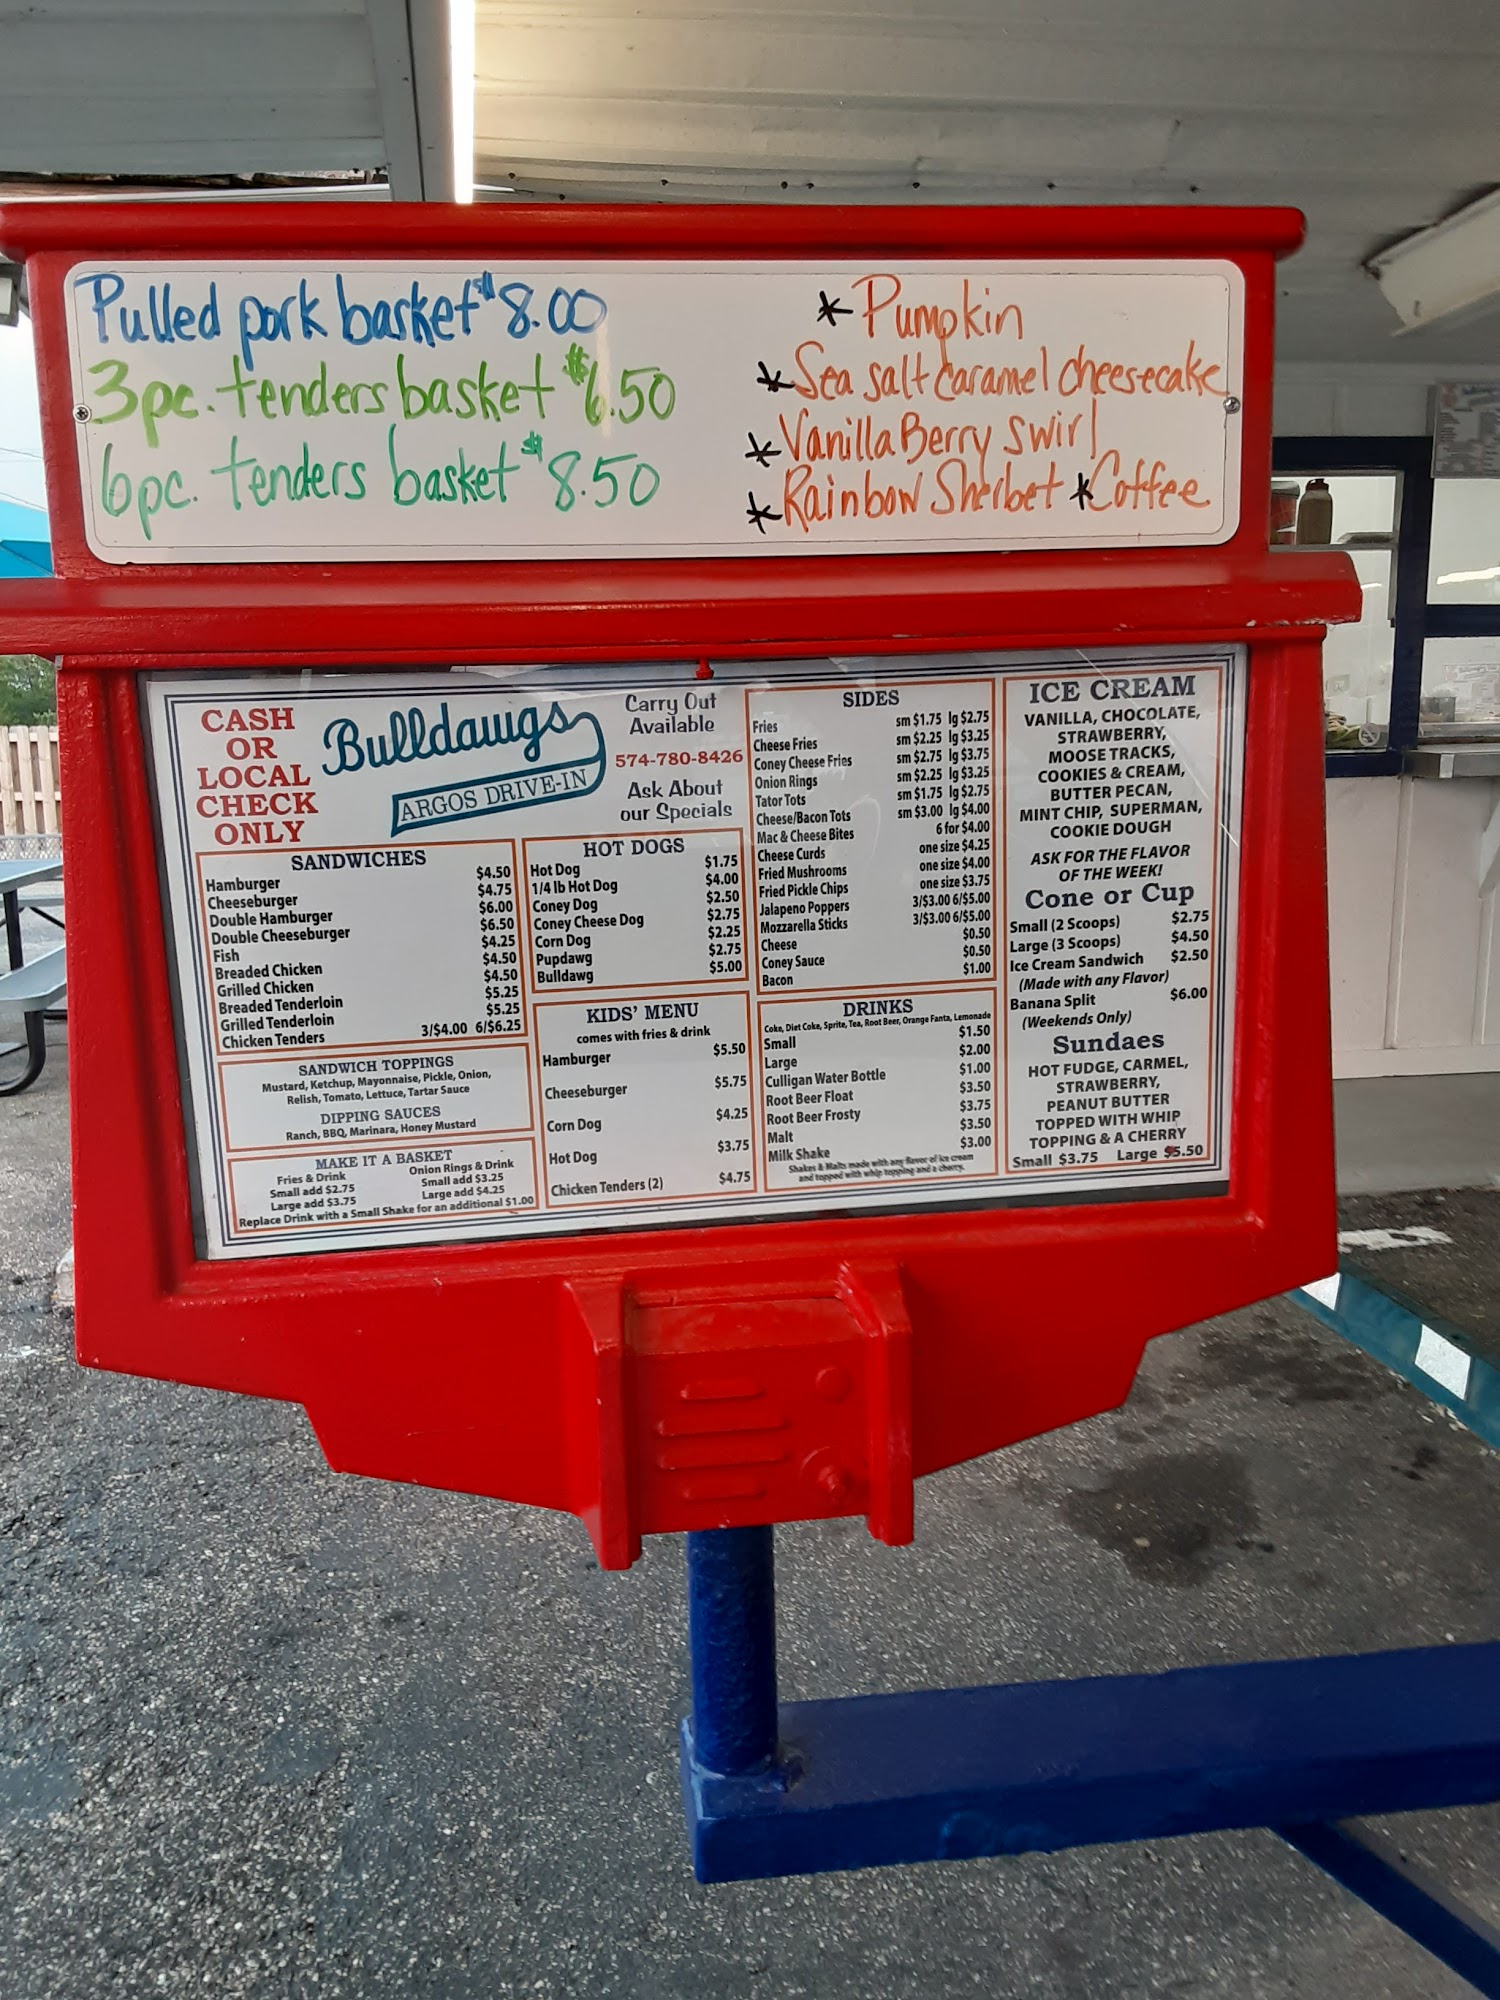 Pulled pork basket $8.00
3pc. tenders basket $6.50
6pc. tenders basket $8.50
* Pumpkin
* Sea salt caramel cheesecake
* Vanilla Berry swirl
* Rainbow Sherbet * Coffee
CASH
OR
LOCAL
CHECK
ONLY
Bulldawgs
ARGOS DRIVE-IN
Carry Out
Available
574-780-8426
Ask About
our Specials
SANDWICHES
Hamburger $4.50
Cheeseburger $4.75
Double Hamburger $6.00
Double Cheeseburger $6.50
Fish $4.25
Breaded Chicken $4.50
Grilled Chicken $4.50
Breaded Tenderloin $5.25
Grilled Tenderloin $5.25
Chicken Tenders 3/$4.00 6/$6.25
SANDWICH TOPPINGS
Mustard, Ketchup, Mayonnaise, Pickle, Onion,
Relish, Tomato, Lettuce, Tartar Sauce
DIPPING SAUCES
Ranch, BBQ, Marinara, Honey Mustard
MAKE IT A BASKET
Fries & Drink
Small add $2.75
Large add $3.75
Onion Rings & Drink
Small add $3.25
Large add $4.25
Replace Drink with a Small Shake for an additional $1.00
HOT DOGS
Hot Dog $1.75
1/4 lb Hot Dog $4.00
Coney Dog $2.50
Coney Cheese Dog $2.75
Corn Dog $2.25
Pupdawg $2.75
Bulldawg $5.00
KIDS' MENU
comes with fries & drink
Hamburger $5.50
Cheeseburger $5.75
Corn Dog $4.25
Hot Dog $3.75
Chicken Tenders (2) $4.75
SIDES
Fries sm $1.75 lg $2.75
Cheese Fries sm $2.25 lg $3.25
Coney Cheese Fries sm $2.75 lg $3.75
Onion Rings sm $2.25 lg $3.25
Tator Tots sm $1.75 lg $2.75
Cheese/Bacon Tots sm $3.00 lg $4.00
Mac & Cheese Bites 6 for $4.00
Cheese Curds one size $4.25
Fried Mushrooms one size $4.00
Fried Pickle Chips one size $3.75
Jalapeno Poppers 3/$3.00 6/$5.00
Mozzarella Sticks 3/$3.00 6/$5.00
Cheese $0.50
Coney Sauce $0.50
Bacon $1.00
DRINKS
Coke, Diet Coke, Sprite, Tea, Root Beer, Orange Fanta, Lemonade
Small $1.50
Large $2.00
Culligan Water Bottle $1.00
Root Beer Float $3.50
Root Beer Frosty $3.75
Malt $3.50
Milk Shake $3.00
Shakes & Malts made with any flavor of ice cream
and topped with whip topping and a cherry.
ICE CREAM
VANILLA, CHOCOLATE,
STRAWBERRY,
MOOSE TRACKS,
COOKIES & CREAM,
BUTTER PECAN,
MINT CHIP, SUPERMAN,
COOKIE DOUGH
ASK FOR THE FLAVOR
OF THE WEEK!
Cone or Cup
Small (2 Scoops) $2.75
Large (3 Scoops) $4.50
Ice Cream Sandwich $2.50
(Made with any Flavor)
Banana Split $6.00
(Weekends Only)
Sundaes
HOT FUDGE, CARMEL,
STRAWBERRY,
PEANUT BUTTER
TOPPED WITH WHIP
TOPPING & A CHERRY
Small $3.75 Large $5.50